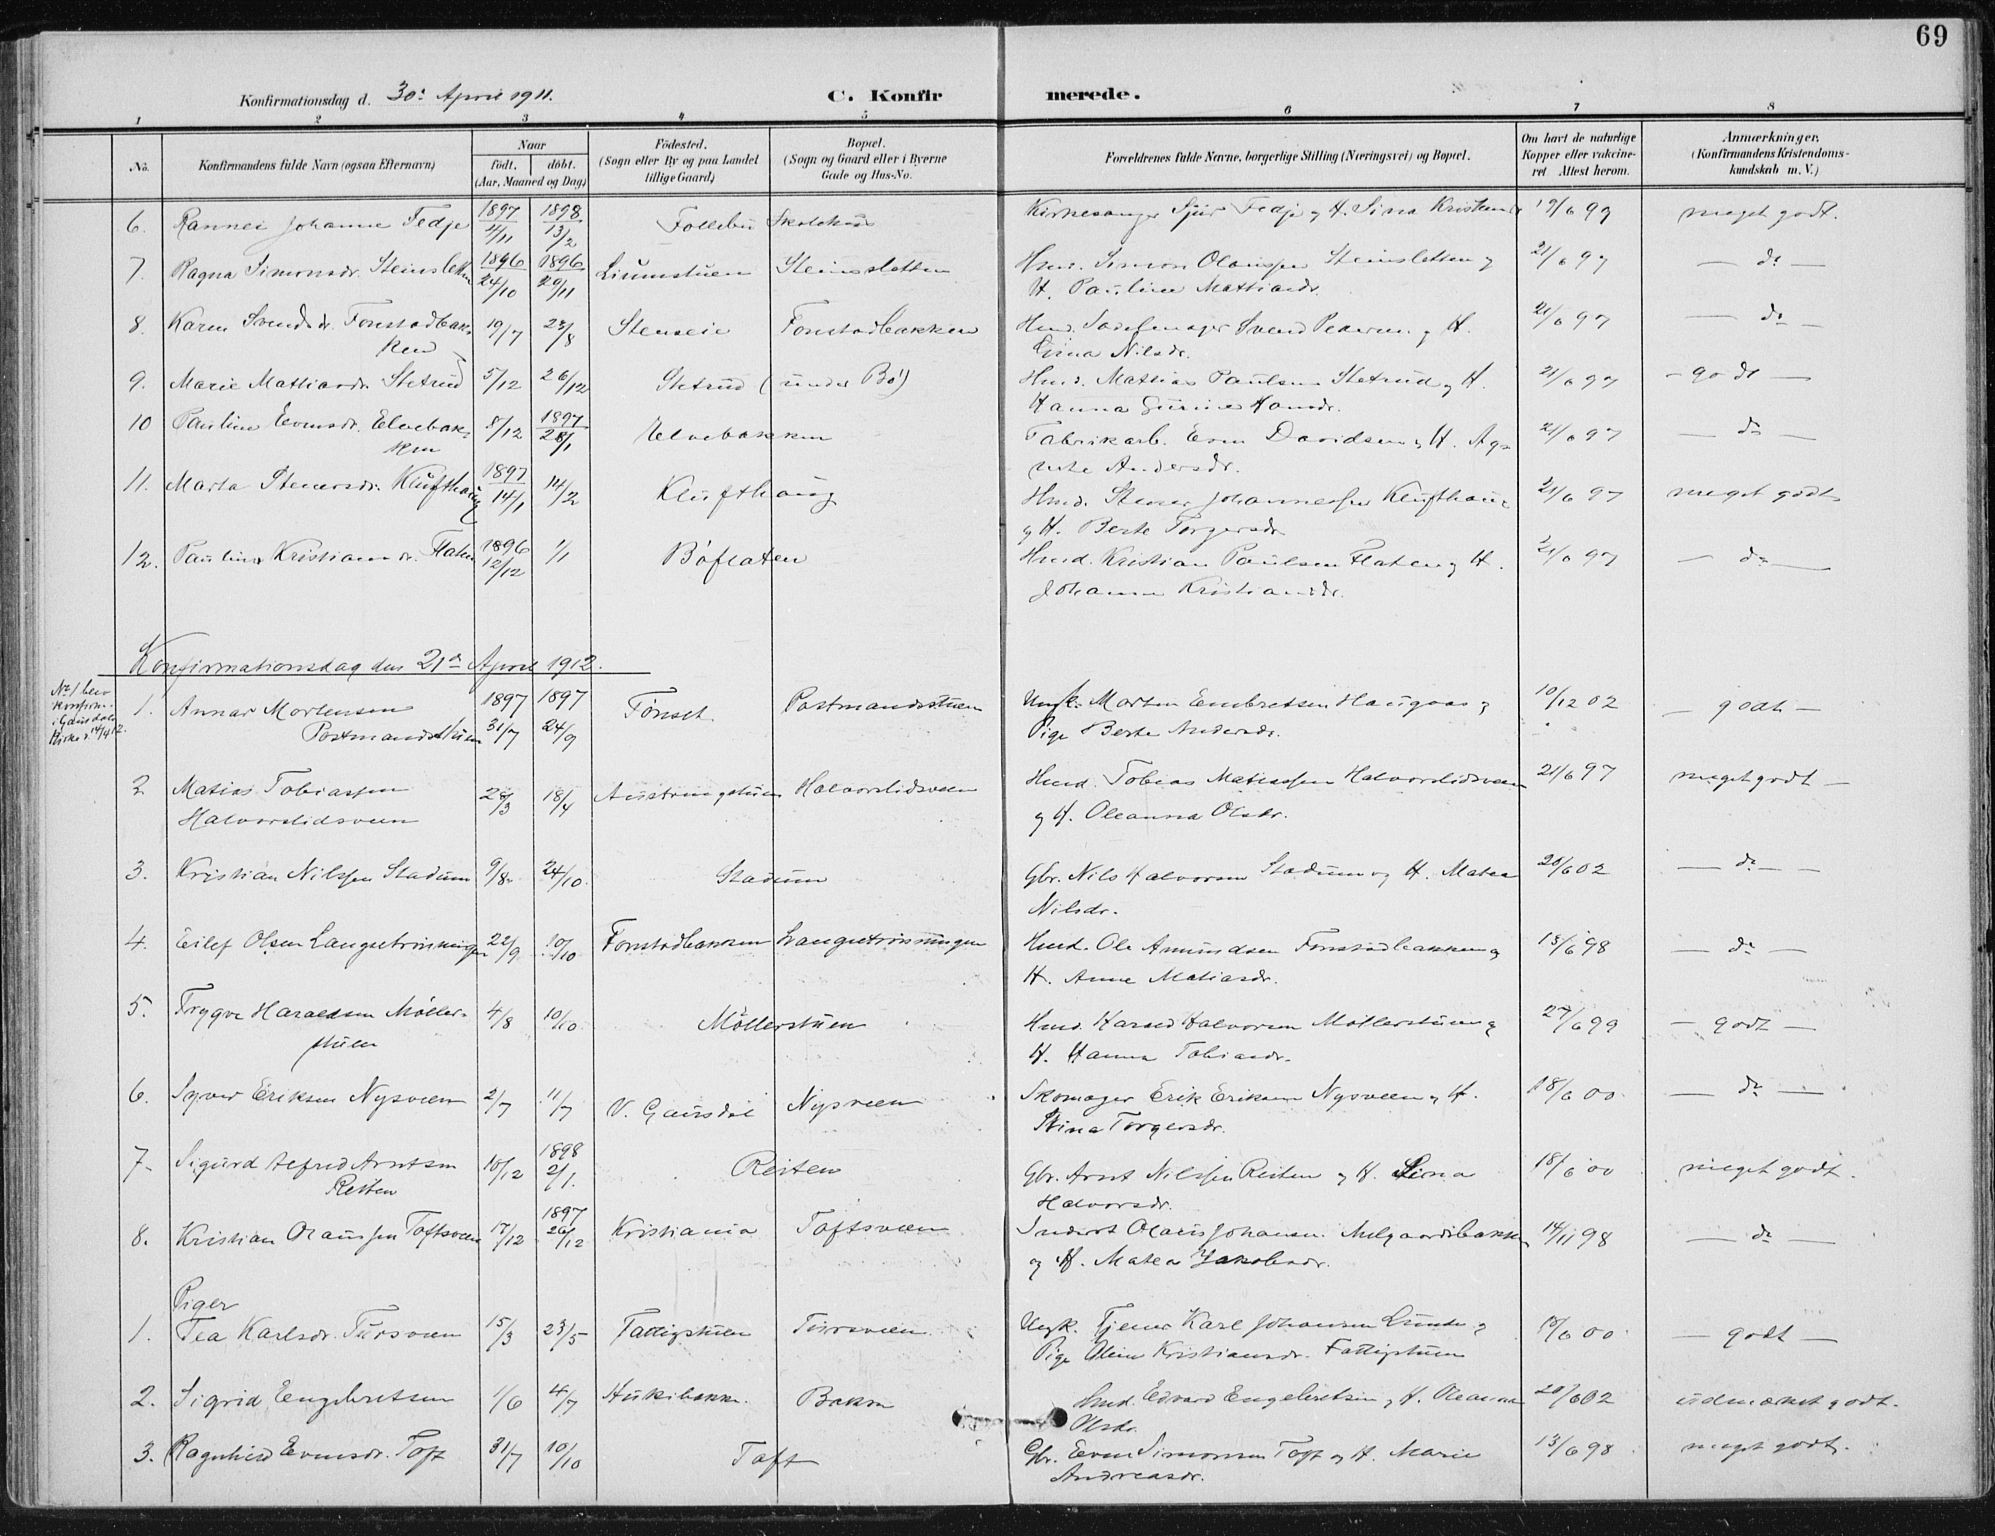 69
Konfirmationsdag d. 30: April 1911. C. Konfirmerede.
1 2 3 4 5 6 7 8
No. Konfirmandens fulde Navn (ogsaa Efternavn) Naar født. døbt. (Aar, Maaned og Dag.) Fødested. (Sogn eller By og paa Landet tillige Gaard.) Bopæl. (Sogn og Gaard eller i Byerne Gade og Hus-No. Forældrenes fulde Navne, borgerlige Stilling (Næringsvei) og Bopæl. Om havt de naturlige Kopper eller vakcineret Attest herom. Anmærkninger, (Konfirmandens Kristendomskundskab m. V.)
6. Rannei Johanne Fedje 1897 4/11 1898 13/2 Follebu Skolehus Kirkesanger Sjur Fedje og H. Sina 19/6 99 meget godt.
7. Ragna Simonsdr. Steinsletten 1896 24/10 1896 29/11 Liumstuen Steinsletten Hmd. Simon Olaussen Steinsletten og 21/6 97 — do —
H. Pauline Mattiasdr.
8. Karen Svendsdr. Fonstadbak- 19/7 23/8 Stenseie Fonstadbakken Hmd. Sadelmager Svend Pedersen og H. 21/6 97 — do —
ken Nilsdr.
9. Marie Mattiasdr. Stetrud 5/12 26/12 Stetrud (under Bø) Hmd. Mattias Paulsen Stetrud og H. 21/6 97 - godt —
Hanna Gurine Hansdr.
10 Pauline Evensdr. Elvebak- 8/12 1897 28/1 Elvebakken Fabrikarb. Even Davidsen og H. Ag- 21/6 97 — do —
ken nethe Andersdr.
11. Marta Stenersdr. Klufthaug 1897 14/1 14/2 Klufthaug Hmd. Stener Johannessen Klufthaug 21/6 97 meget godt
og H. Berte Torgersdr.
12. Pauline Kristiansdr. Flaten 1896 12/12 1/1 Bøflaten Hmd. Kristian Paulsen Flaten og H. 21/6 97 — do —
Johanne Kristiansdr.
Konfirmationsdag den 21de April 1912.
No 1 blev
konfirm.
i Gausdals
Kirke d. 14/4 12.
1. Annar Mortensen 1897 31/7 1897 24/9 Fønset. Postmandsstuen Ungk. Morten Embretsen Haugaas og 10/12 02 — godt —
Postmandsstuen Pige Berte Andersdr.
2 Matias Tobiassen 28/3 18/4 Austringstuen Halvorslidsveen Hmd. Tobias Matiassen Halvorslidsveen 21/6 97 meget godt —
Halvorslidsveen og H. Oleanna Olsdr.
3. Kristian Nilssen Stadum 9/8 24/10 Stadum Gbr. Nils Halvorsen Stadum og H. Matea 20/6 02 — do —
Nilsdr.
4. Eilef Olsen Langsetrønningen 22/9 10/10 Fonstadbakken Langsetrønningen Hmd. Ole Amundsen Fonstadbakken og 13/6 98 — do —
H. Anne Matiasdr.
5. Trygve Haraldsen Møller- 4/8 10/10 Møllerstuen Hmd. Harald Halvorsen Møllerstuen og 27/6 99 — godt —
stuen H. Hanna Tobiasdr.
6. Syver Eriksen Nysveen 2/7 11/7 V. Gausdal Nysveen Skomager Erik Eriksen Nysveen og H. 18/6 00 — do —
Stina Torgersdr.
7. Sigurd Alfred Arntsen 10/12 1898 2/1. Reiten Gbr. Arnt Nilssen Reiten og H. Sina 18/6 00 meget godt.
Reiten Halvorsdr.
8. Kristian Olaussen Toftsveen 17/12 1897 26/12 Kristiania Toftsveen Inderst Olaus Johansen Melgaardsbakken 14/11 98 — do —
og H. Matea Jakobsdr.
Piger
1. Tea Karlsdr. Tursveen 15/3 23/5 Fattigstuen Tursveen Ungk. Tjener Karl Johansen Lunde og 18/6 00 — godt —
Pige Oline Kristiansdr. Fattigstuen
2. Sigrid Engebretsen 1/6 4/7 Bakken Hmd. Edvard Engebretsen og H. Oleanna 20/6 02 udmærket godt.
Olsdr.
3. Ragnhild Evensdr. Toft 31/7 10/10 Toft Gbr. Even Simonsen Toft og H. Marie 13/6 98 meget godt.
Andreasdr.